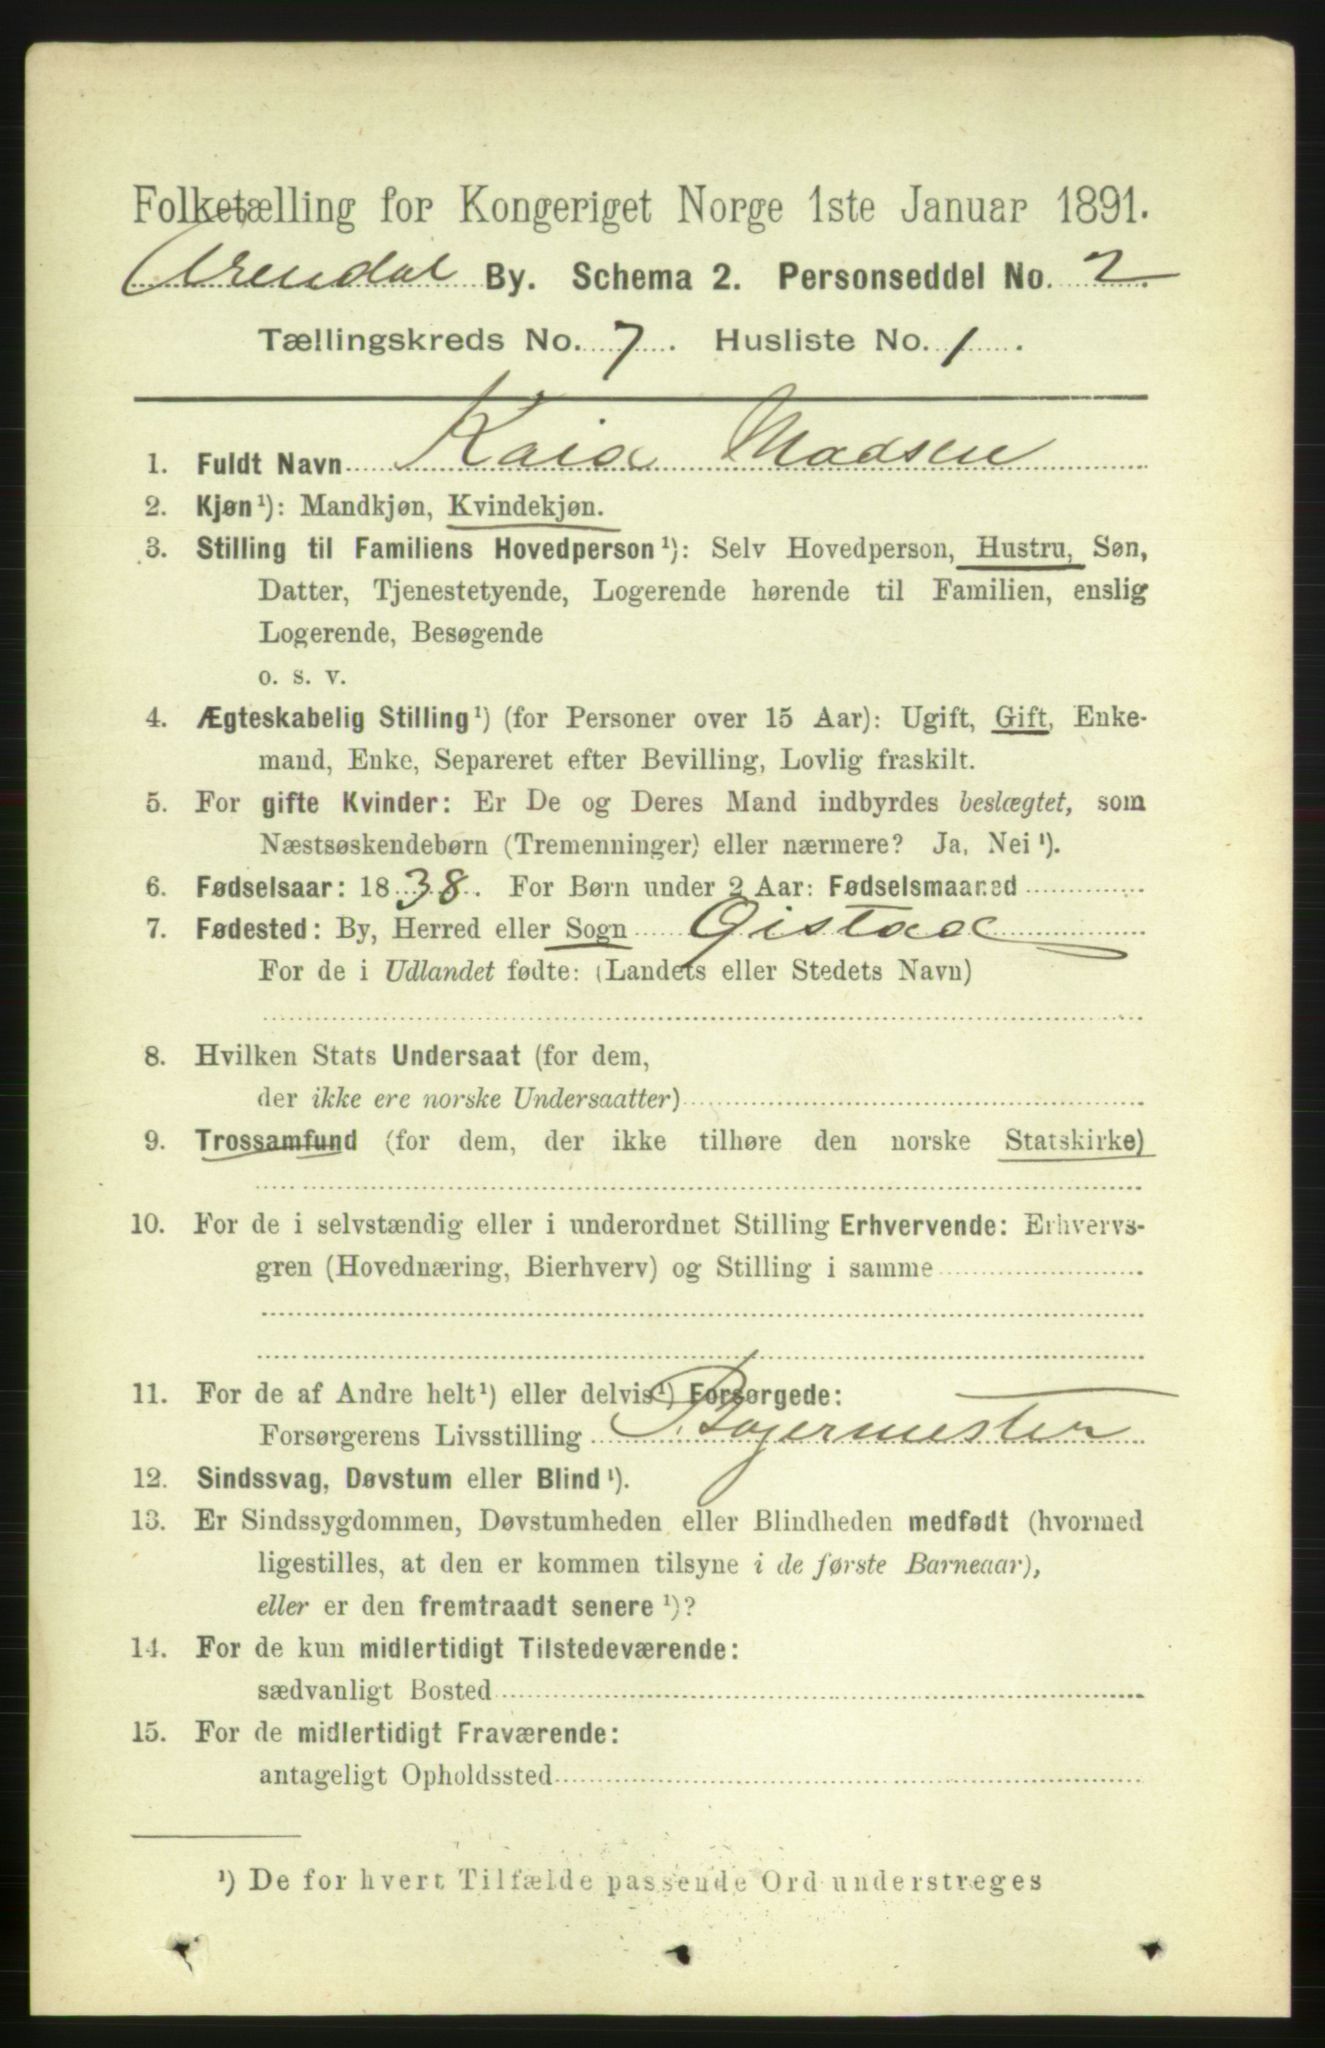 Folketælling for Kongeriget Norge 1ste Januar 1891.
Arendal By. Schema 2. Personseddel No. 2.
Tællingskreds No. 7. Husliste No. 1.
1. Fuldt Navn Kaia Madsen
2. Kjøn¹): Mandkjøn, Kvindekjøn.
3. Stilling til Familiens Hovedperson¹): Selv Hovedperson, Hustru, Søn,
Datter, Tjenestetyende, Logerende hørende til Familien, enslig
Logerende, Besøgende
o. s. v.
4. Ægteskabelig Stilling¹) (for Personer over 15 Aar): Ugift, Gift, Enke-
mand, Enke, Separeret efter Bevilling, Lovlig fraskilt.
5. For gifte Kvinder: Er De og Deres Mand indbyrdes beslægtet, som
Næstsøskendebørn (Tremenninger) eller nærmere? Ja, Nei¹).
6. Fødselsaar: 1838. For Børn under 2 Aar: Fødselsmaaned
7. Fødested: By, Herred eller Sogn Øistad
For de i Udlandet fødte: (Landets eller Stedets Navn)
8. Hvilken Stats Undersaat (for dem,
der ikke ere norske Undersaatter)
9. Trossamfund (for dem, der ikke tilhøre den norske Statskirke)
10. For de i selvstændig eller i underordnet Stilling Erhvervende: Erhvervs-
gren (Hovednæring, Bierhverv) og Stilling i samme
11. For de af Andre helt¹) eller delvis¹) Forsørgede:
Forsørgerens Livsstilling Bagermester
12. Sindssvag, Døvstum eller Blind¹).
13. Er Sindssygdommen, Døvstumheden eller Blindheden medfødt (hvormed
ligestilles, at den er kommen tilsyne i de første Barneaar),
eller er den fremtraadt senere¹)?
14. For de kun midlertidigt Tilstedeværende:
sædvanligt Bosted
15. For de midlertidigt Fraværende:
antageligt Opholdssted
¹) De for hvert Tilfælde passende Ord understreges